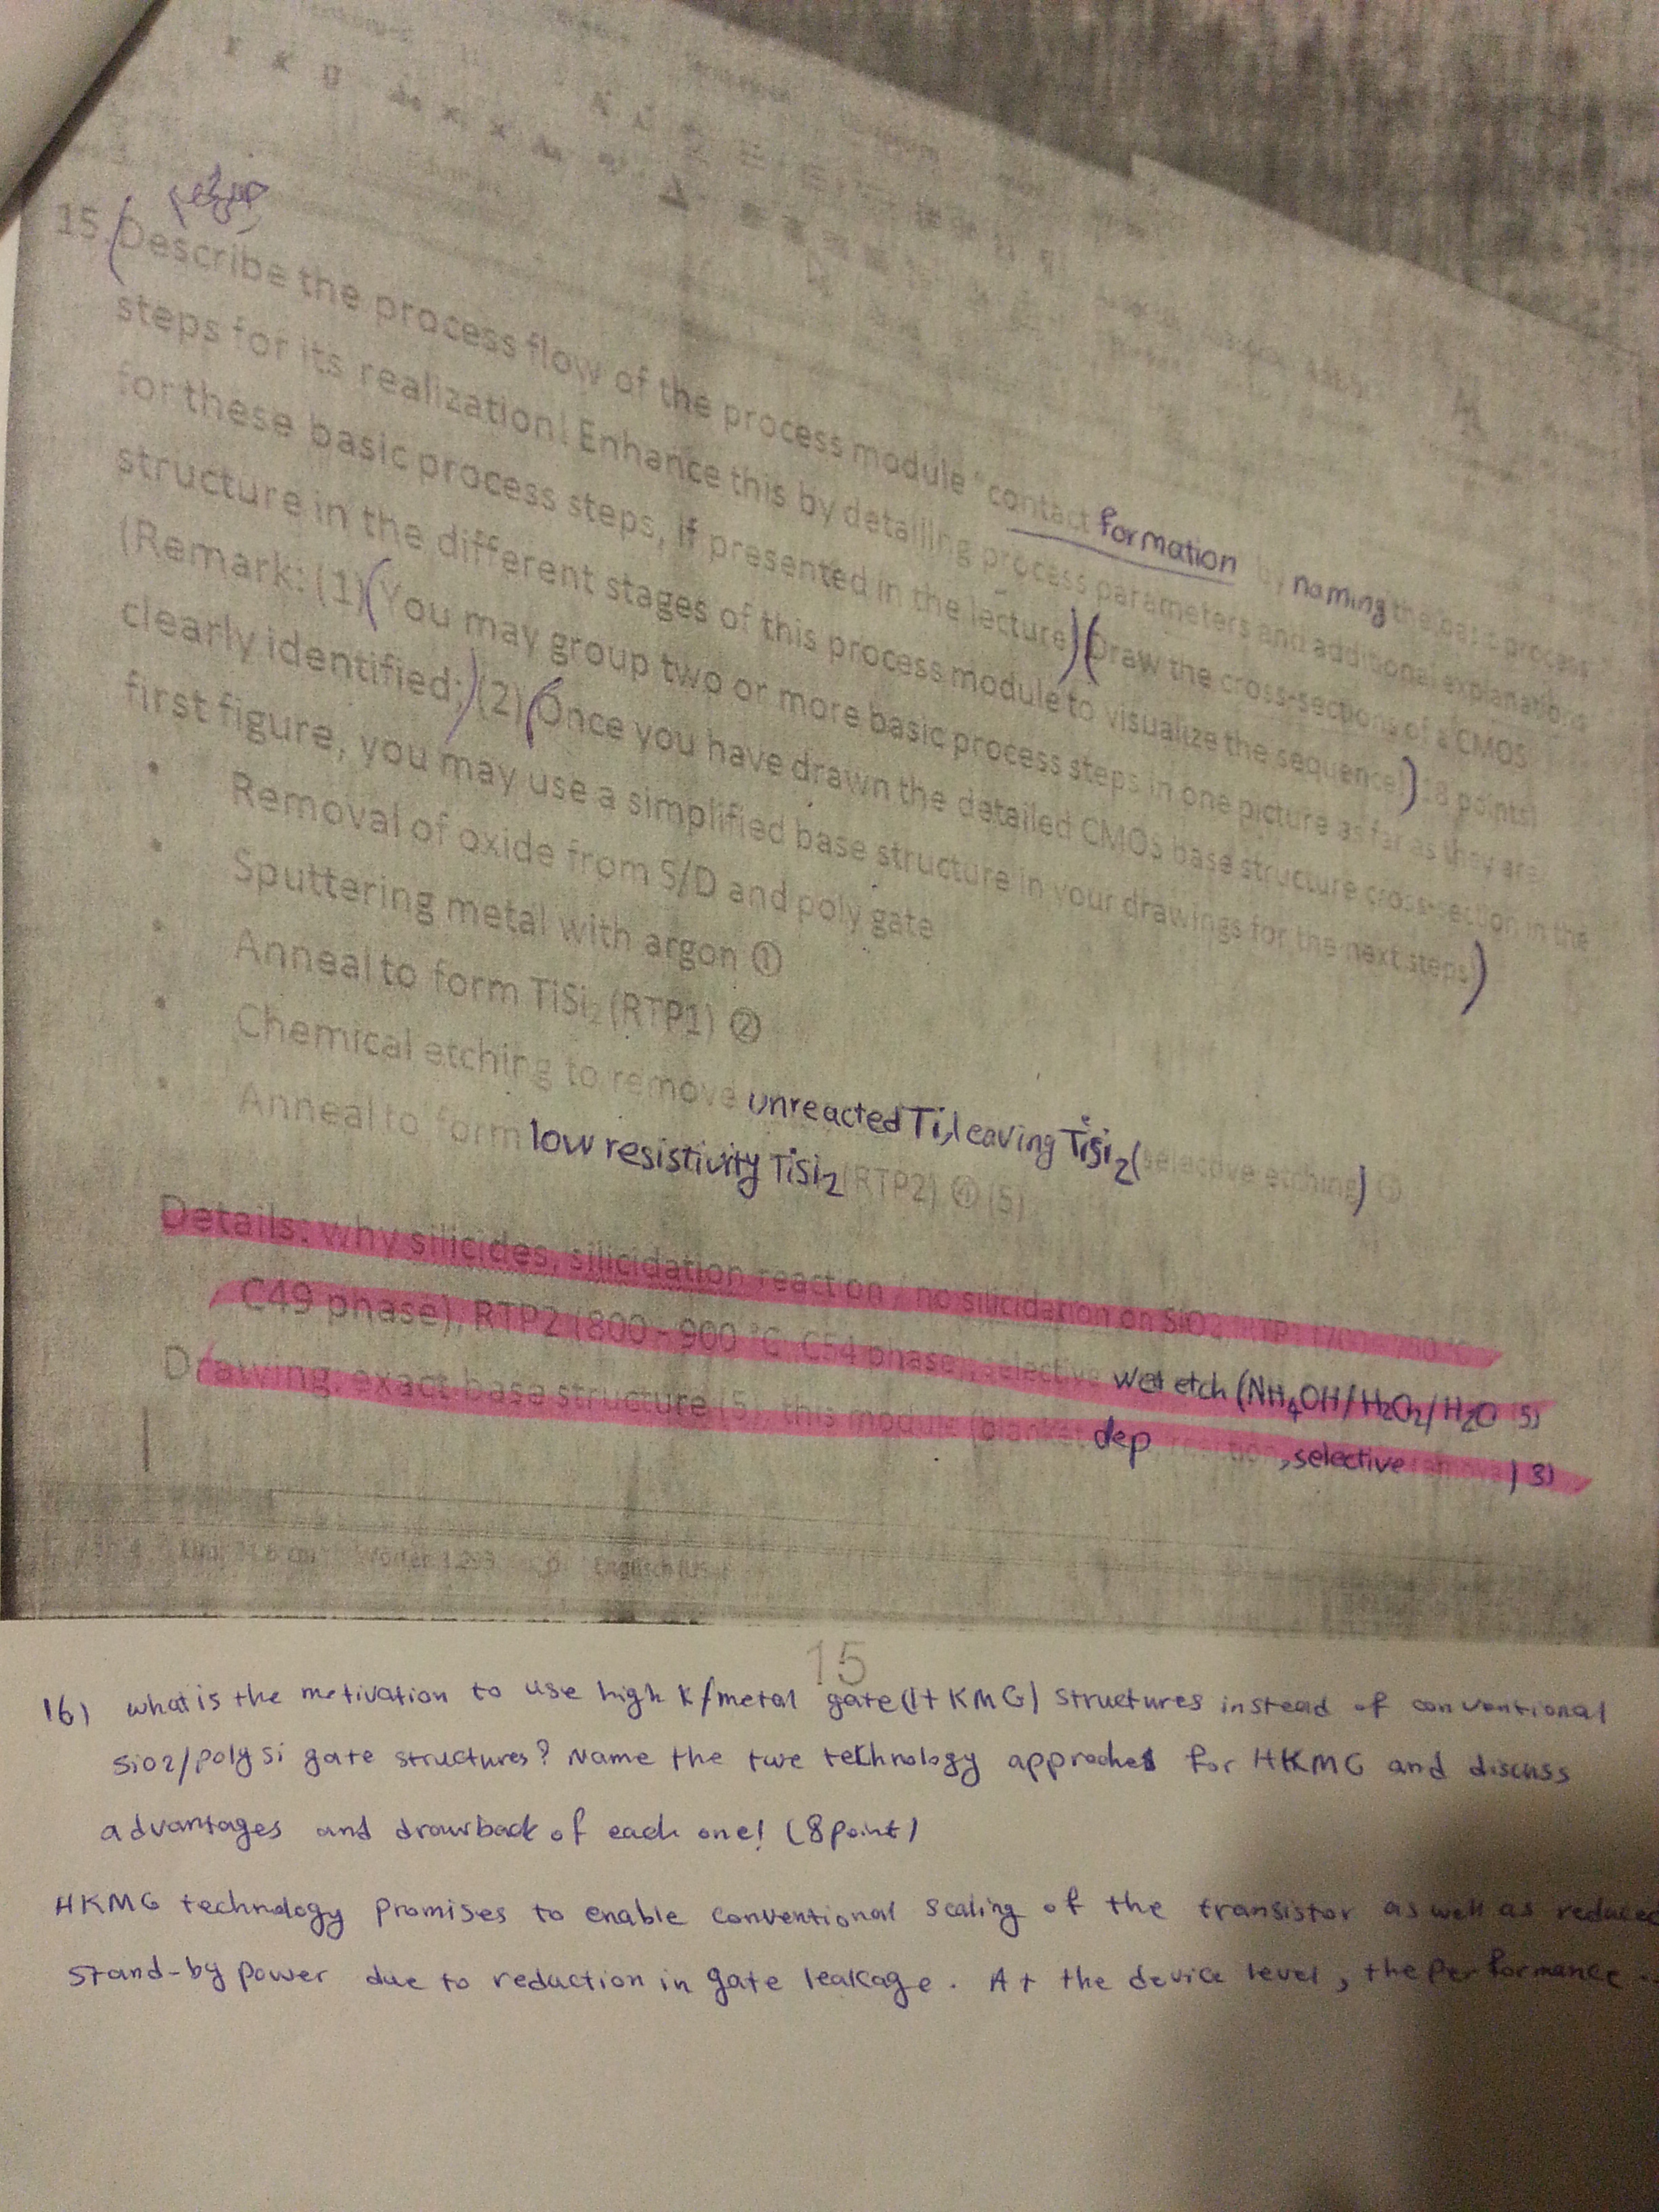 15. Describe the process flow of the process module "contact formation by naming the basic process
steps for its realization! Enhance this by detailing process parameters and additional explanations
for these basic process steps, if presented in the lecture) (Draw the cross-sections of a CMOS
structure in the different stages of this process module to visualize the sequence!) 18 points)
(Remark: (1) (You may group two or more basic process steps in one picture as far as they are
clearly identified;) (2) (Once you have drawn the detailed CMOs base structure cross-section in the
first figure, you may use a simplified base structure in your drawings for the next steps)
• Removal of oxide from S/D and poly gate
• Sputtering metal with argon ①
• Anneal to form TiSi₂ (RTP1) ②
• Chemical etching to remove unreacted Ti, leaving TiSi₂ (selective etching)
• Anneal to form low resistivity TiSi₂ (RTP2) ④ (5)
Details: why silicides, silicidation reaction / no silicidation on SiO₂,
C49 phase), RTP2 (800 - 900 °C, C54 phase), selective wet etch (NH₄OH/H₂O₂/H₂O (5)
Drawing: exact base structure (5), this module (blanket dep reaction, selective removal) 3)
Wörter: 1.293 Englisch (US
15
16) what is the motivation to use high k/metal gate (HKMG) structures instead of conventional
SiO2/poly si gate structures? Name the two technology approches for HKMG and discuss
advantages and drawback of each one! (8 point)
HKMG technology promises to enable conventional scaling of the transistor as well as reduced
stand-by power due to reduction in gate leakage. At the device level, the performance